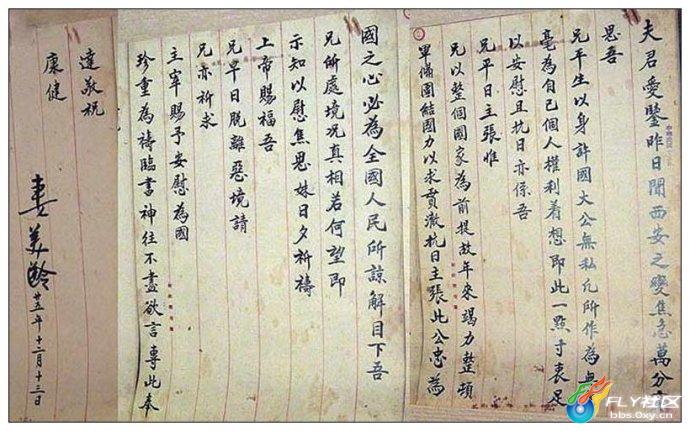 夫君愛鑒昨日聞西安之變焦急萬分
思吾
兄平生以身許國大公無私凡所作為
毫為自己個人權利着想即此一點于衷足
以安慰且抗日亦係吾
兄平日主張惟
兄以整個國家為前提故年來竭力整頓
軍備團結國力以求貫澈抗日主張此公忠為
國之心必為全國人民所諒解目下吾
兄所處境况真相若何望即
示知以慰焦思妹日夕祈禱
上帝賜福吾
兄早日脫離惡境請
兄亦祈求
主宰賜予安慰為國
珍重為禱臨書神往不盡欲言專此奉
達敬祝
康健
妻美齡 廿五年十二月十三日
FLY社区
bbs.0xy.cn